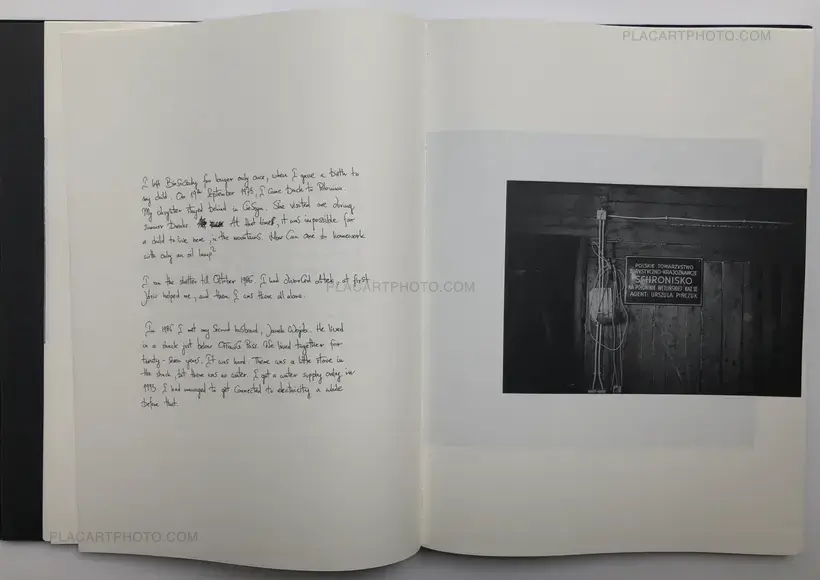 PLACARTPHOTO.COM
I left Bieszczady for longer only once, when I gave a birth to
my child. On 19th September 1975, I came back to
My daughter stayed behind in She visited me during
summer breaks. At that time, it was impossible for
a child to live here, in the mountains. How can one do homework
with only an oil lamp?
I ran the shelter till October 1986. I had divorced after, at first
helped me, and then I was there all alone.
PLACARTPHOTO.COM
In 1986 I met my second husband, He lived
in a shack just below Pass. We lived together for
twenty-seven years. It was hard. There was a little stove in
the shack, but there was no water. I got a water supply only in
1995. I had managed to get connected to electricity a while
before that.
POLSKIE TOWARZYSTWO
TURYSTYCZNO-KRAJOZNAWCZE
SCHRONISKO
NA POŁONINIE WETLIŃSKIEJ KAT. III
AGENT: URSZULA PIŃCZUK
PLACARTPHOTO.COM